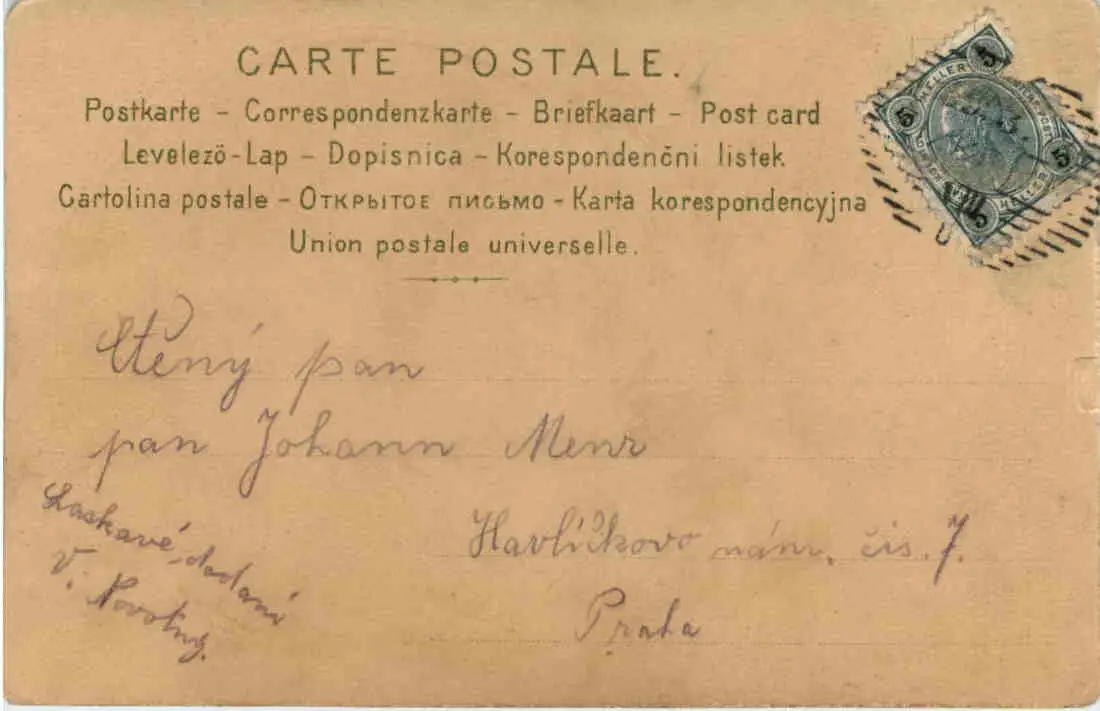 CARTE POSTALE.
Postkarte - Correspondenzkarte - Briefkaart - Post card
Levelező-Lap - Dopisnica - Korespondenčni listek
Cartolina postale - Открытое письмо - Karta korespondencyjna
Union postale universelle.
5 HELLER 5
5 HELLER 5
Ctěný pan
pan Johann Menr
Laskavé dodání
V. Novotny.
Havlíčkovo nám. čis. 7.
Praha